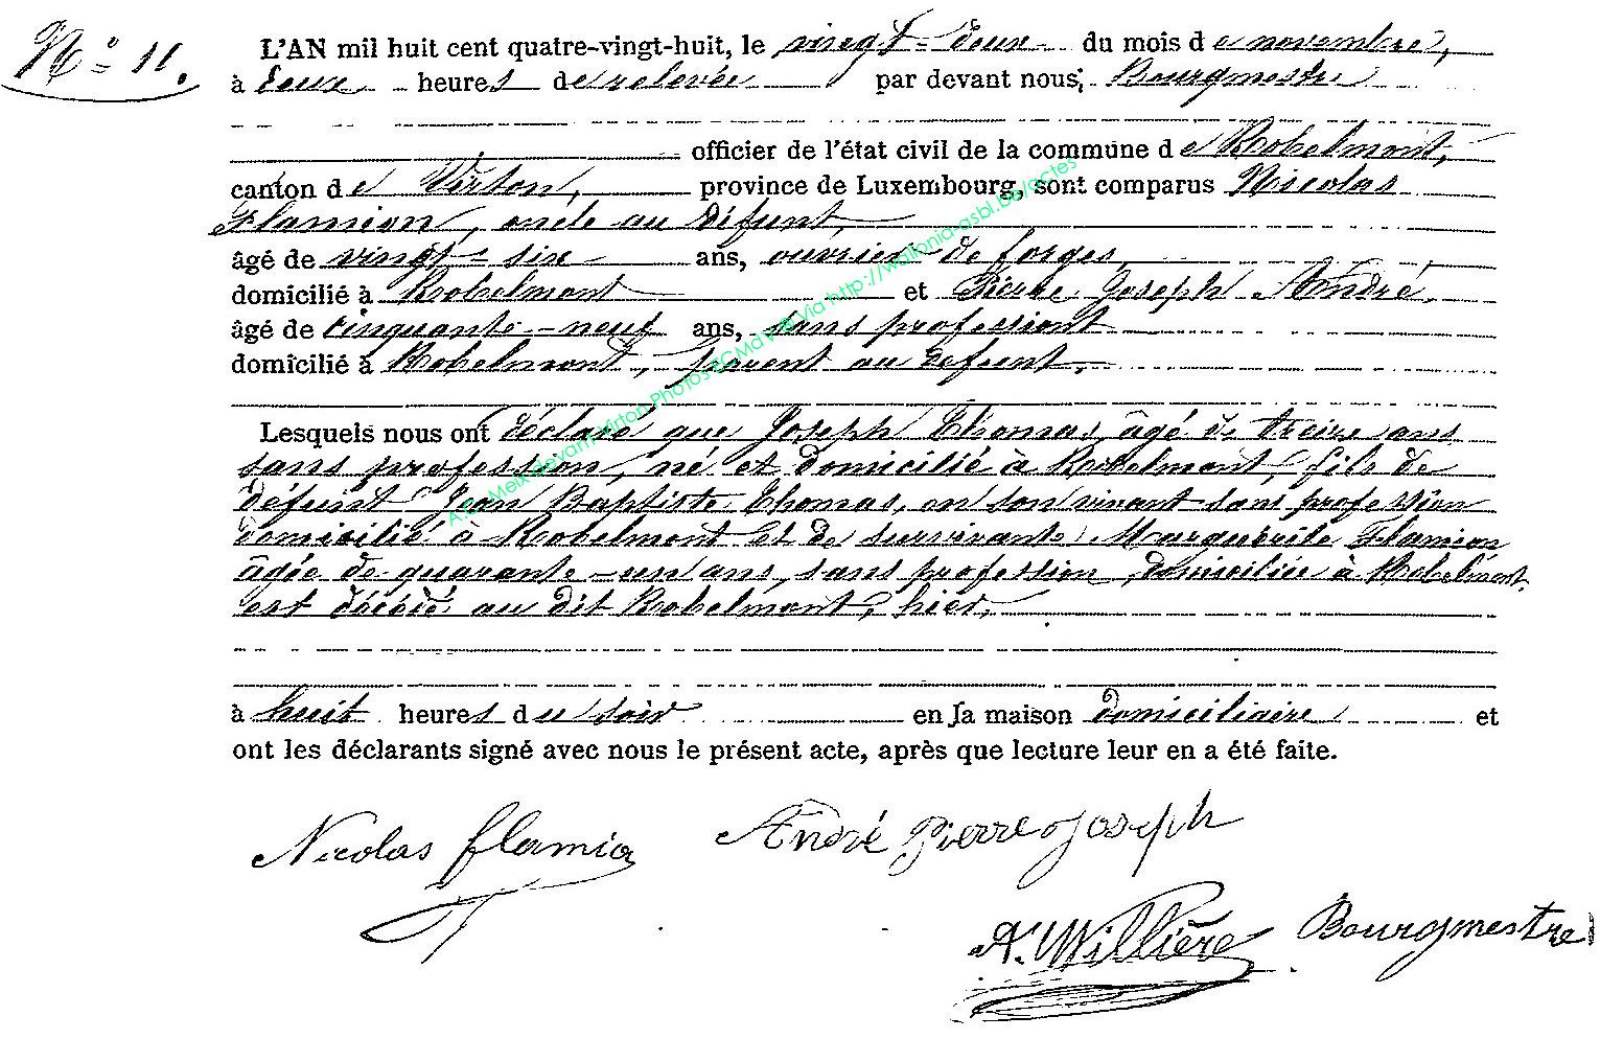 N° 11.
L'AN mil huit cent quatre-vingt-huit, le vingt-deux du mois de novembre,
à deux heures de relevée par devant nous, Bourgmestre
officier de l'état civil de la commune de Robelmont,
canton de Virton, province de Luxembourg, sont comparus Nicolas
Flamion, oncle au défunt,
âgé de vingt-six ans, ouvrier de forges,
domicilié à Robelmont et Pierre Joseph André,
âgé de cinquante-neuf ans, sans profession
domicilié à Robelmont, parent au défunt,
Lesquels nous ont déclaré que Joseph Thomas, âgé de treize ans
sans profession, né et domicilié à Robelmont, fils de
défunt Jean Baptiste Thomas, en son vivant sans profession
domicilié à Robelmont et de survivante Marguerite Flamion
âgée de quarante-un ans, sans profession, domiciliée à Robelmont,
est décédé au dit Robelmont, hier,
à huit heures du soir en sa maison domiciliaire et
ont les déclarants signé avec nous le présent acte, après que lecture leur en a été faite.
Nicolas flamion André Pierre Joseph
A. Willière Bourgmestre